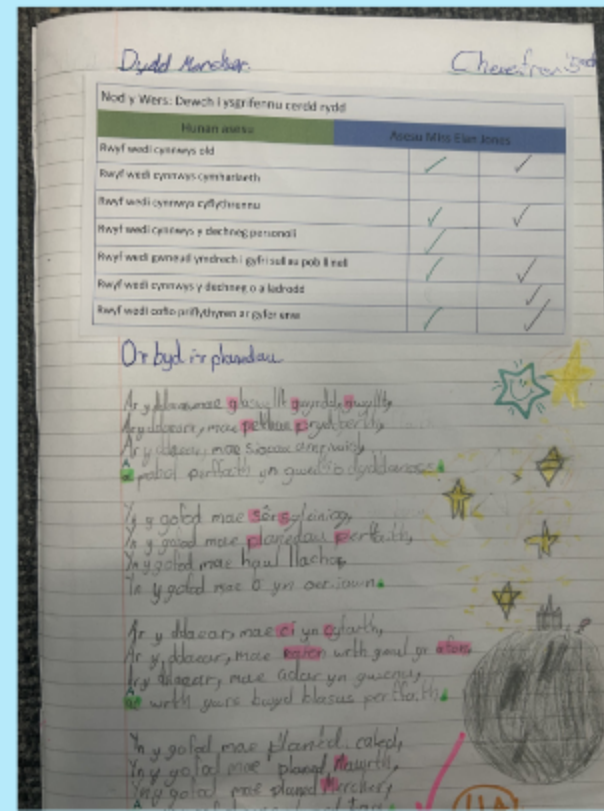 Dydd Mawrth
Nod y Wers: Dewch i ysgrifennu cerdd rydd
Hunan asesu
Asesu Miss Elan Jones
Rwyf wedi cynnwys odl
Rwyf wedi cynnwys cymhariaeth
Rwyf wedi cynnwys cyflythrennu
Rwyf wedi cynnwys y dechneg personoli
Rwyf wedi gwneud ymdrech i gyfri sillau pob llinell
Rwyf wedi cynnwys y dechneg o ailadrodd
Rwyf wedi cofio priflythyren ar gyfer enw
O'r byd i'r planedau
Ar y ddaear, mae glaswellt gwyrdd gwyllt,
Ar y ddaear, mae pethau prydferth,
Ar y ddaear, mae
pobol perffaith yn
Yn y gofod mae sêr sgleiniog,
Yn y gofod mae planedau perffaith,
Yn y gofod mae haul llachar
Yn y gofod mae o yn oer iawn.
Ar y ddaear, mae ci yn cyfarth,
Ar y ddaear, mae wrth yr afon,
Ar y ddaear, mae adar yn gwenu,
wrth bwyd blasus perffaith.
Yn y gofod mae planed caled,
Yn y gofod mae planed Mawrth,
Yn y gofod mae planed Mercher,